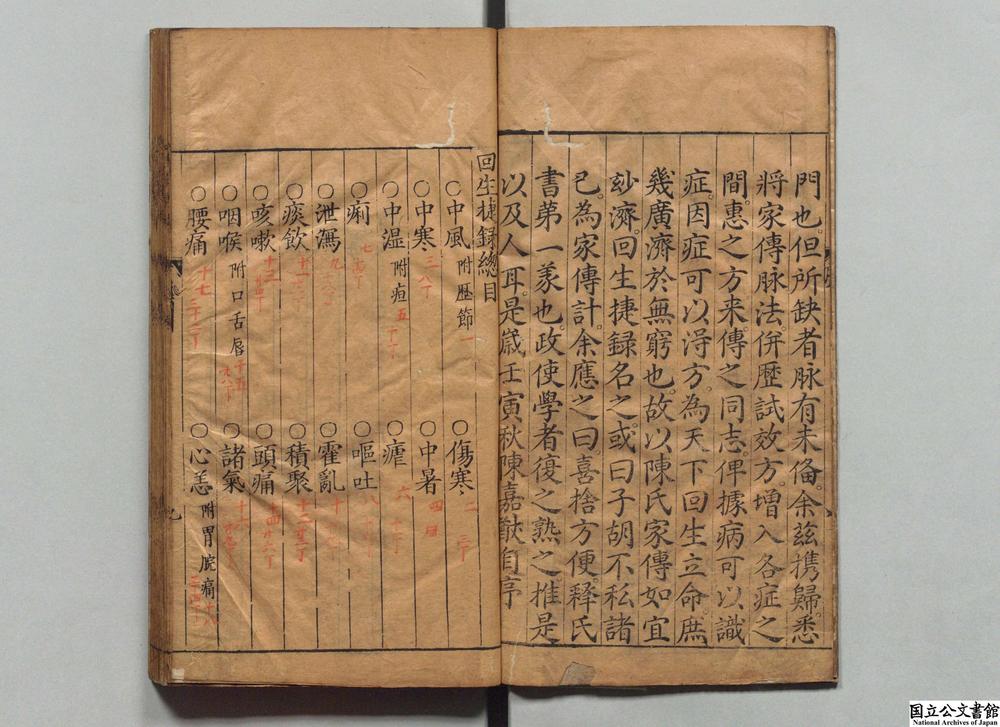 門也但所缺者脉有未俻余茲携歸悉
將家傳脉法併歷試效方增入各症之
間惠之方来傳之同志俾據病可以識
症因症可以淂方為天下回生立命庶
幾廣濟於無窮也故以陳氏家傳如宜
玅濟回生捷録名之或曰子胡不私諸
已為家傳計余應之曰喜捨方便釋氏
書第一義也政使學者復之熟之推是
以及人耳是歲壬寅秋陳嘉猷自序
回生捷録總目
○中風 附歷節 一
○傷寒 二 三丁
○中寒 三 八丁
○中暑 四
○中湿 附疸 五 十丁
○瘧 六
○痢 七
○嘔吐 八
○泄瀉 九
○霍亂 十
○痰飲 十一
○積聚 十二
○咳嗽 十三
○頭痛 十四
○咽喉 附口舌唇 十五
○諸氣 十六
○腰痛 十七
○心恙 附胃脘痛 十八
国立公文書館
National Archives of Japan